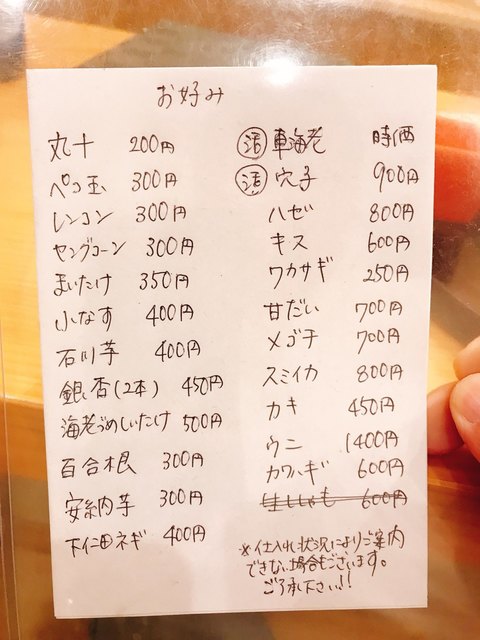 お好み
丸十 200円
ペコ玉 300円
レンコン 300円
ヤングコーン 300円
まいたけ 350円
小なす 400円
石川芋 400円
銀杏(2本) 450円
海老づめしいたけ 500円
百合根 300円
安納芋 300円
下仁田ネギ 400円
活 車海老 時価
活 穴子 900円
ハゼ 800円
キス 600円
ワカサギ 250円
甘だい 700円
メゴチ 700円
スミイカ 800円
カキ 450円
ウニ 1400円
カワハギ 600円
生ししゃも 600円
※仕入れ状況によりご案内
できない場合もございます。
ご了承下さい!!